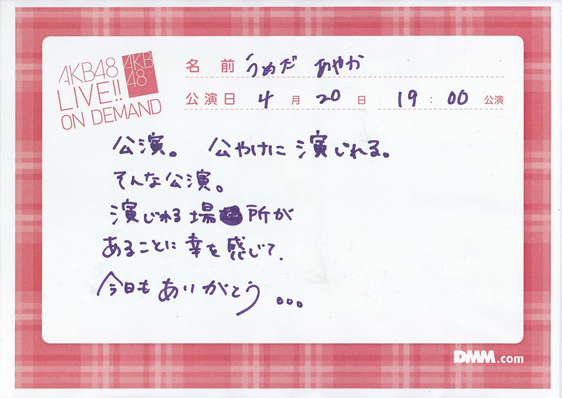 AKB48
LIVE!!
ON DEMAND
AKB
48
名 前 うめだ あやか
公演日 4 月 20 日 19 : 00 公演
公演。 公やけに演じれる。
そんな公演。
演じれる場所が
あることに幸を感じて、
今日もありがとう...
DMM.com